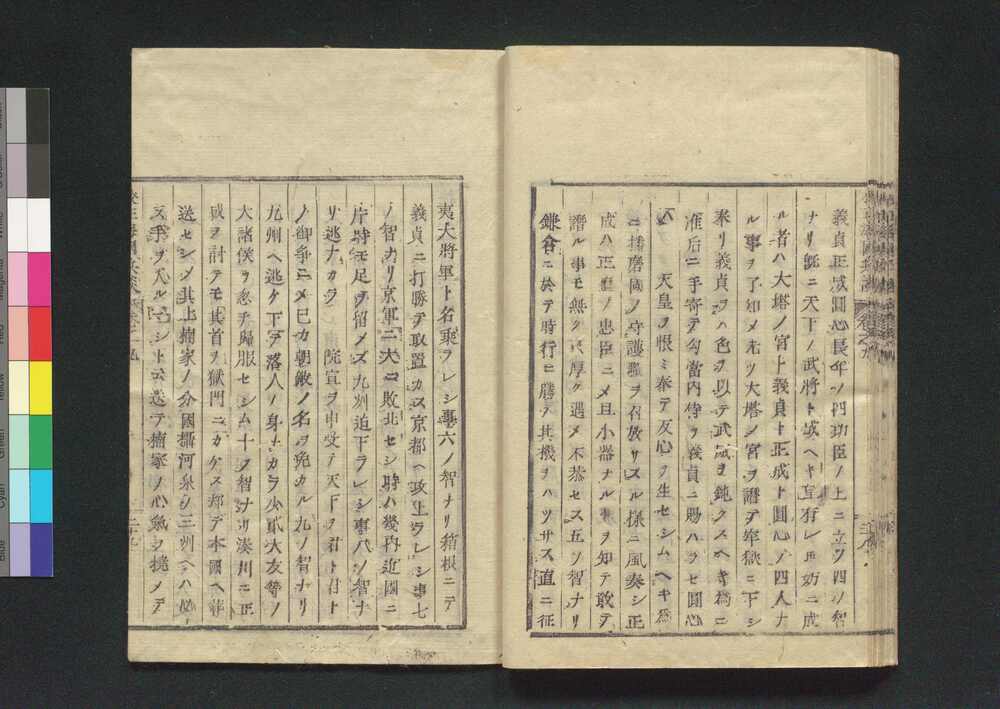 義貞正成圓心長年ノ四功臣ノ上ニ立ツ四ノ智
ナリ既ニ天下ノ武將ト成ヘキ宜有レ𪜈妨ニ成
ル者ハ大塔ノ宮ト義貞ト正成ト圓心ノ四人ナ
ル事ヲ了知メ先ツ大塔ノ宮ヲ譖テ牢獄ニ下シ
奉リ義貞ヲハ色ヲ以テ武威ヲ鈍クスヘキ為ニ
准后ニ手寄テ勾當内侍ヲ義貞ニ賜ハラセ圓心
天皇ヲ恨ミ奉テ反心ヲ生セシムヘキ為
ニ播磨國ノ守護職ヲ召放リスル様ニ風奏シ正
成ハ正直ノ忠臣ニメ且小器ナル事ヲ知テ敢テ
譖ル事モ無ク只厚ク遇メ不恭セス五ノ智ナリ
鎌倉ニ於テ時行ニ勝テ其機ヲハツサス直ニ征
夷大將軍ト名乘ラレシ事六ノ智ナリ箱根ニテ
義貞ニ打勝テ取置カス京都ヘ攻上ラレシ事七
ノ智ナリ京軍ニ大ニ敗北セシ時ハ幾内近國ニ
片時モ足ヲ留メズ九州迫下ラレシ事八ノ智ナ
リ逃ナカラ 院宣ヲ申受テ天下ヲ君ト君ト
ノ御爭ニメ已カ朝敵ノ名ヲ免カル九ノ智ナリ
九州ヘ逃ケ下テ落人ノ身ナカラ少貳大友等ノ
大諸侯ヲ忽チ歸服セシム十ヲ智ナリ湊川ニ正
成ヲ討テモ其首ヲ獄門ニカケス却テ本國ヘ葬
送セシメ其上楠家ノ分國攝河泉ノ三州ヘハ
手ヲ入ル テ楠家ノ心氣ヲ撓メテ